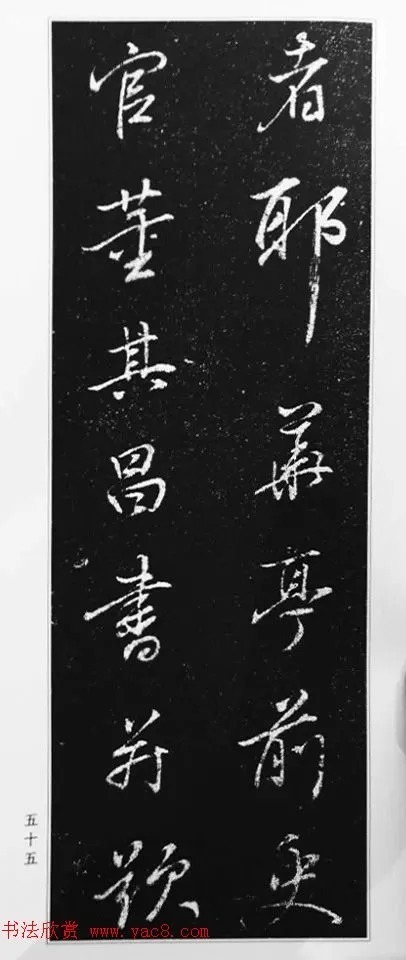 者耶華亭前史
官董其昌書并題
五十五
书法欣赏 www.yac8.com